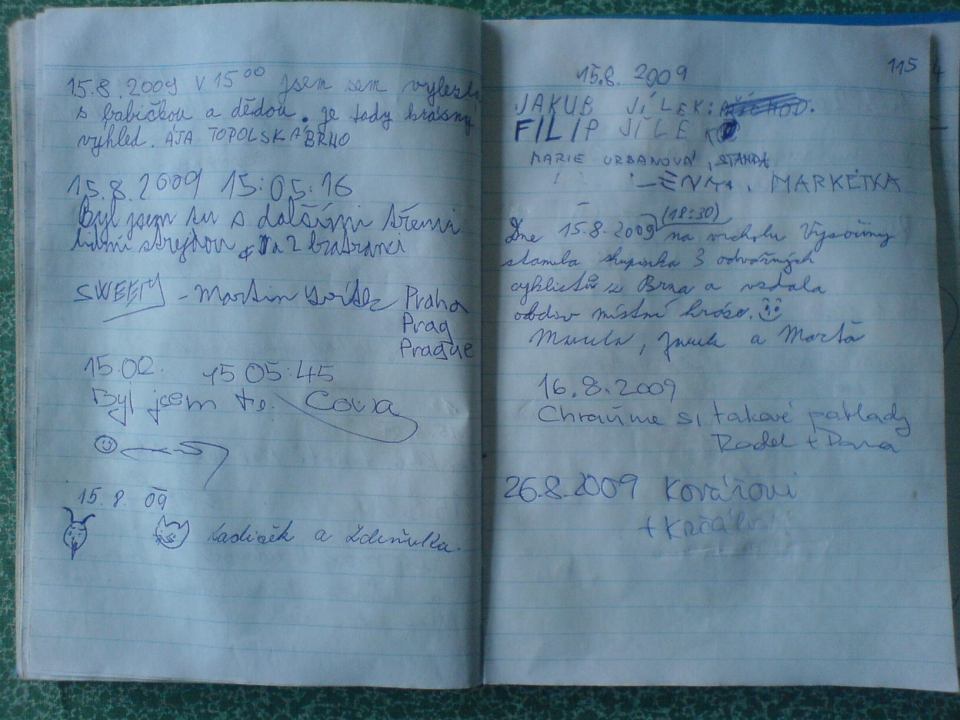 15.8.2009 v 15⁰⁰ jsem sem vylezla
s babičkou a dědou. je tady krásný
výhled. ÁJA TOPOLSKÁ BRNO
15.8.2009 15:05:16
Byl jsem tu s dalšími třemi
lidmi strejdou a 2 bratranci
SWEETY - Martin Praha
Prag
Prague
15.02. 15 05:45
Byl jsem tu.
15.8. 09
Ladiček a Zdeňulka.
115
15.8. 2009
JAKUB JÍLEK:
FILIP JÍLE
MARIE URBANOVÁ, STANDA
MARKÉTKA
Dne 15.8.2009 (18:30) na vrcholu Vysočiny
stanula skupinka 3 odvážných
cyklistů z Brna a vzdala
obdiv místní kráse.
a Marta
16.8.2009
Chraňme si takové poklady
Radek + Dana
26.8.2009 Kovářovi